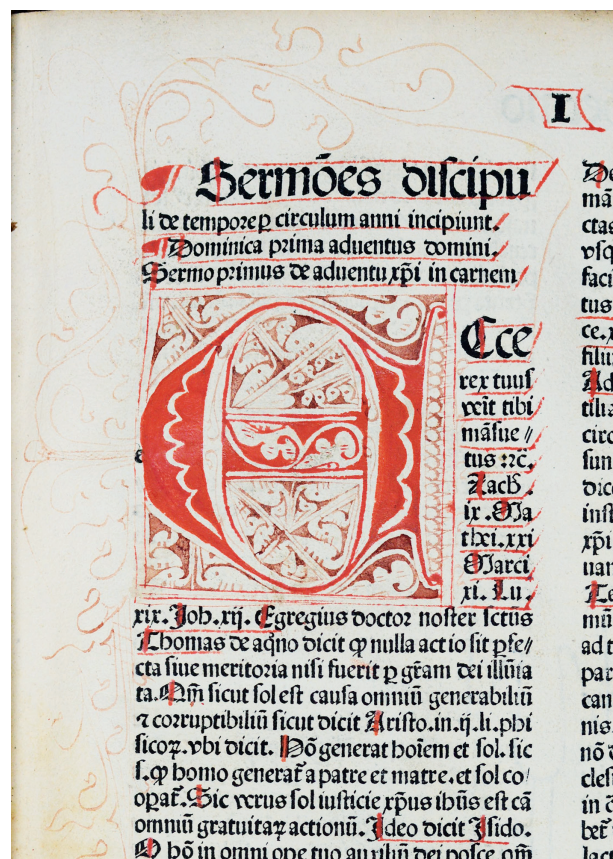 I
Sermões discipu
li de tempore ꝑ circulum anni incipiunt.
Dominica prima aduentus domini.
Sermo primus de aduentu xp̄i in carnem
Ecce
rex tuus
veīt tibi
māsue〃
tus ⁊c̄.
Zach .
ix . Ma
thei . xxi
Marci
xi. Lu.
xix. Joh. xij. Egregius doctor noster sctus
Thomas de aq̄no dicit ꝙ nulla actio sit ꝑfe〃
cta siue meritoria nisi fuerit ꝑ gr̄am dei illūīa
ta. Qm̄ sicut sol est causa omniū generabiliū
⁊ corruptibiliū sicut dicit Aristo. in. ij. li. phi
sicoꝝ. vbi dicit. Hō generat hoīem et sol. sic
s. ꝙ homo generat̄ a patre et matre. et sol co
oꝑat̄. Sic verus sol iusticie xp̄us ibūs est cā
omniū gratuitaꝝ actionū. Ideo dicit Isido.
De
mā
ctas
vsq
faci
tus
ce. x
filiu
Ad
tilia
circ
sun
dice
inst
xp̄i
uan
Te
mū
ad t
par
can
nis.
nō
cles
in c
bet̄